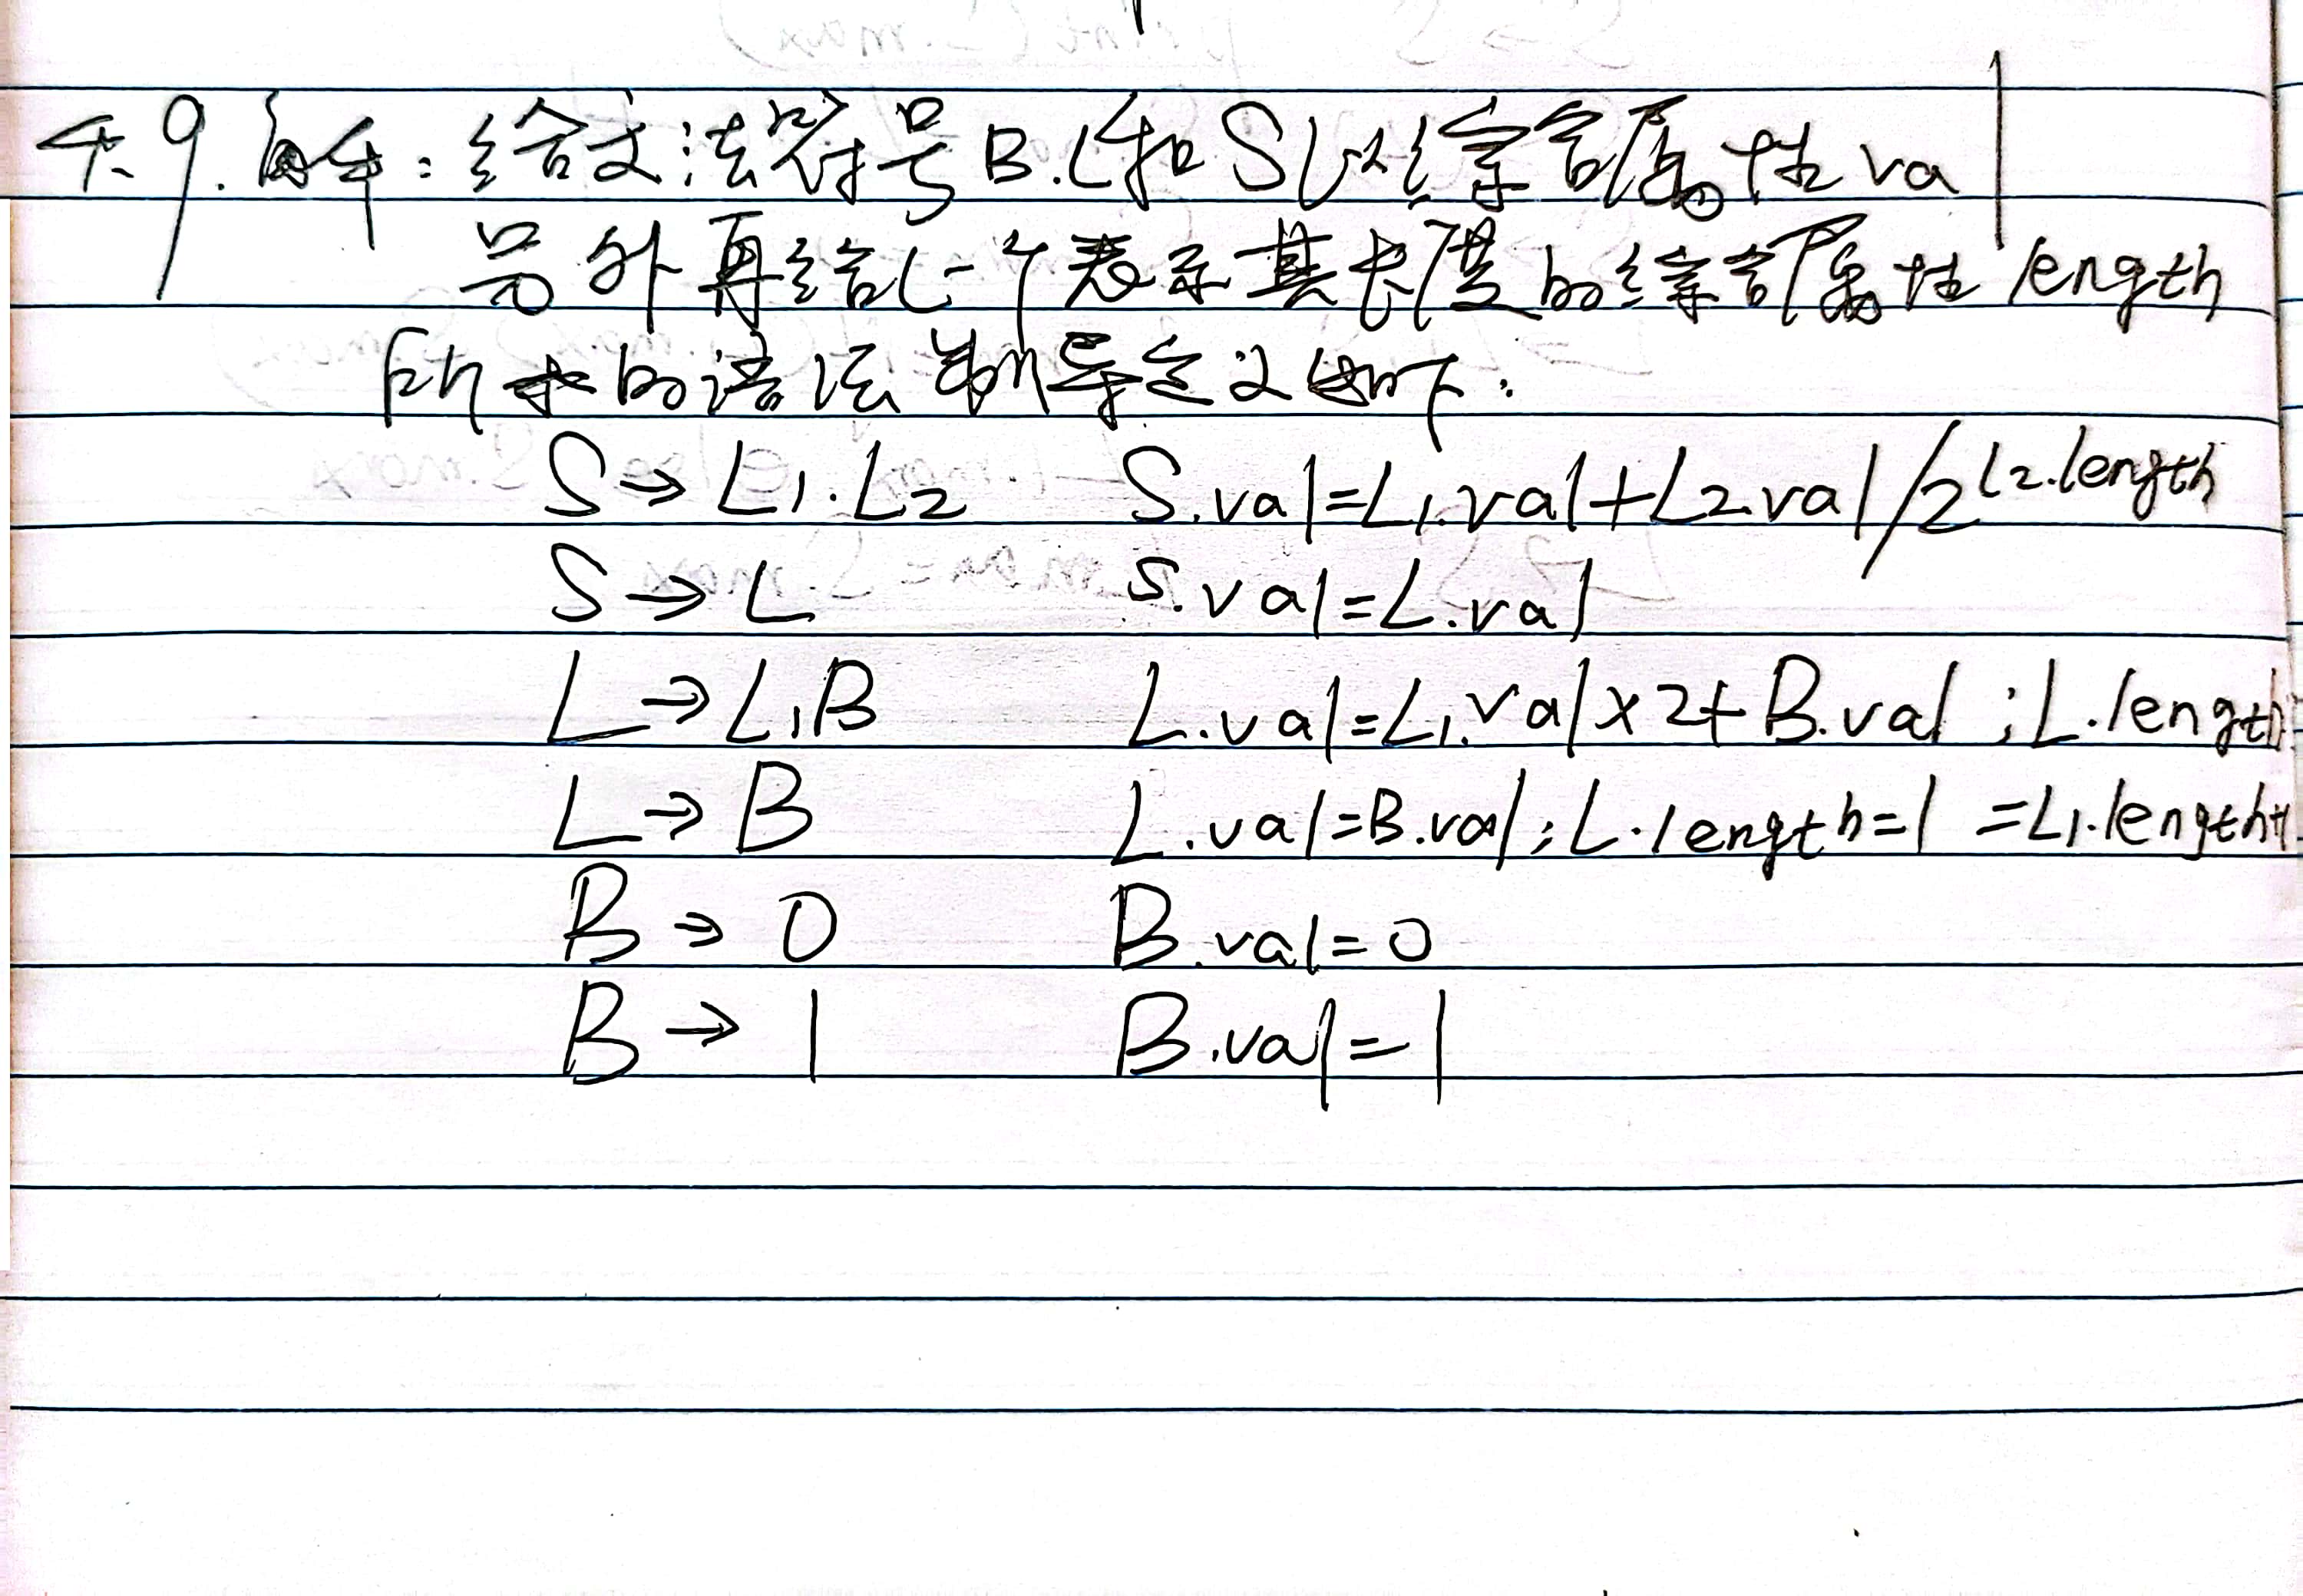 4.9.解：给文法符号B.L和S以综合属性val
另外再给L一个表示其长度的综合属性length
所求的语法制导定义如下：
S→L1.L2 S.val=L1.val+L2.val/2^L2.length
S→L S.val=L.val
L→L1B L.val=L1.val×2+B.val;L.length
L→B L.val=B.val;L.length=1 =L1.length+1
B→0 B.val=0
B→1 B.val=1